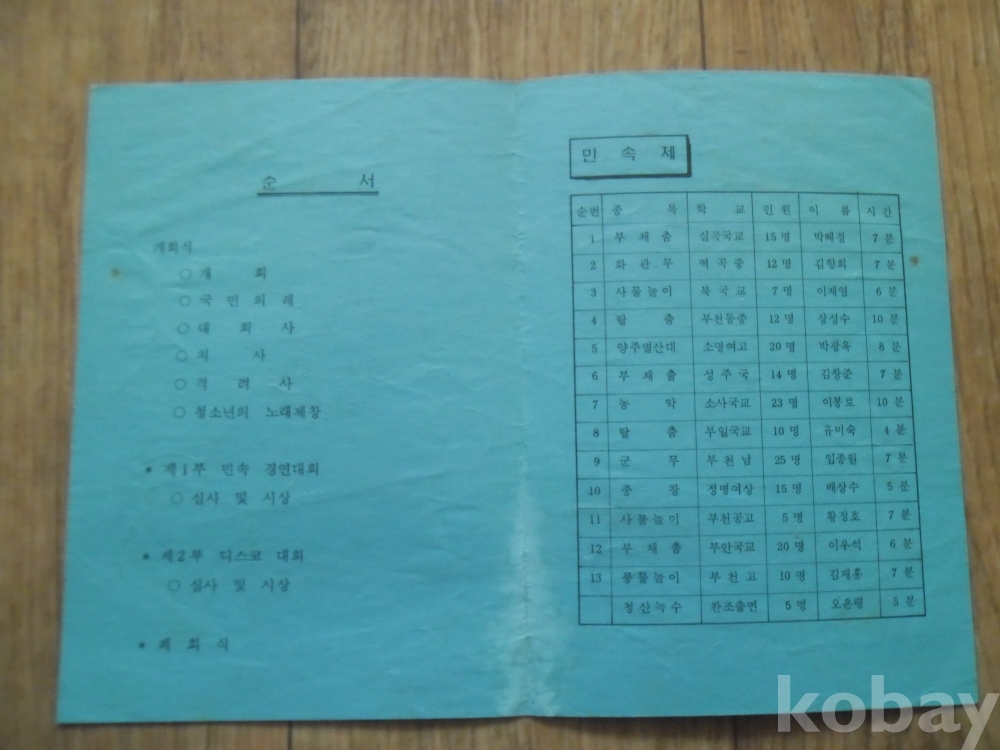 순 서
개회식
○ 개 회
○ 국 민 의 례
○ 대 회 사
○ 치 사
○ 격 려 사
○ 청소년의 노래제창
* 제1부 민속 경연대회
○ 심사 및 시상
* 제2부 디스코 대회
○ 심사 및 시상
* 폐 회 식
민 속 제
순번 종 목 학 교 인 원 이 름 시 간
1 부 채 춤 심곡국교 15 명 박혜경 7 분
2 화 관 무 역 곡 중 12 명 김향희 7 분
3 사물놀이 북 국 교 7 명 이재영 6 분
4 탈 춤 부천동중 12 명 장성수 10 분
5 양주별산대 소명여고 20 명 박광옥 8 분
6 부 채 춤 성 주 국 14 명 김창준 7 분
7 농 악 소사국교 23 명 이봉로 10 분
8 탈 춤 부일국교 10 명 유미숙 4 분
9 군 무 부 천 남 25 명 임종원 7 분
10 중 창 정명여상 15 명 배상수 5 분
11 사물놀이 부천공고 5 명 황정호 7 분
12 부 채 춤 부안국교 20 명 이우석 6 분
13 풍물놀이 부 천 고 10 명 김재홍 7 분
청산녹수 찬조출연 5 명 오은령 5 분
kobay